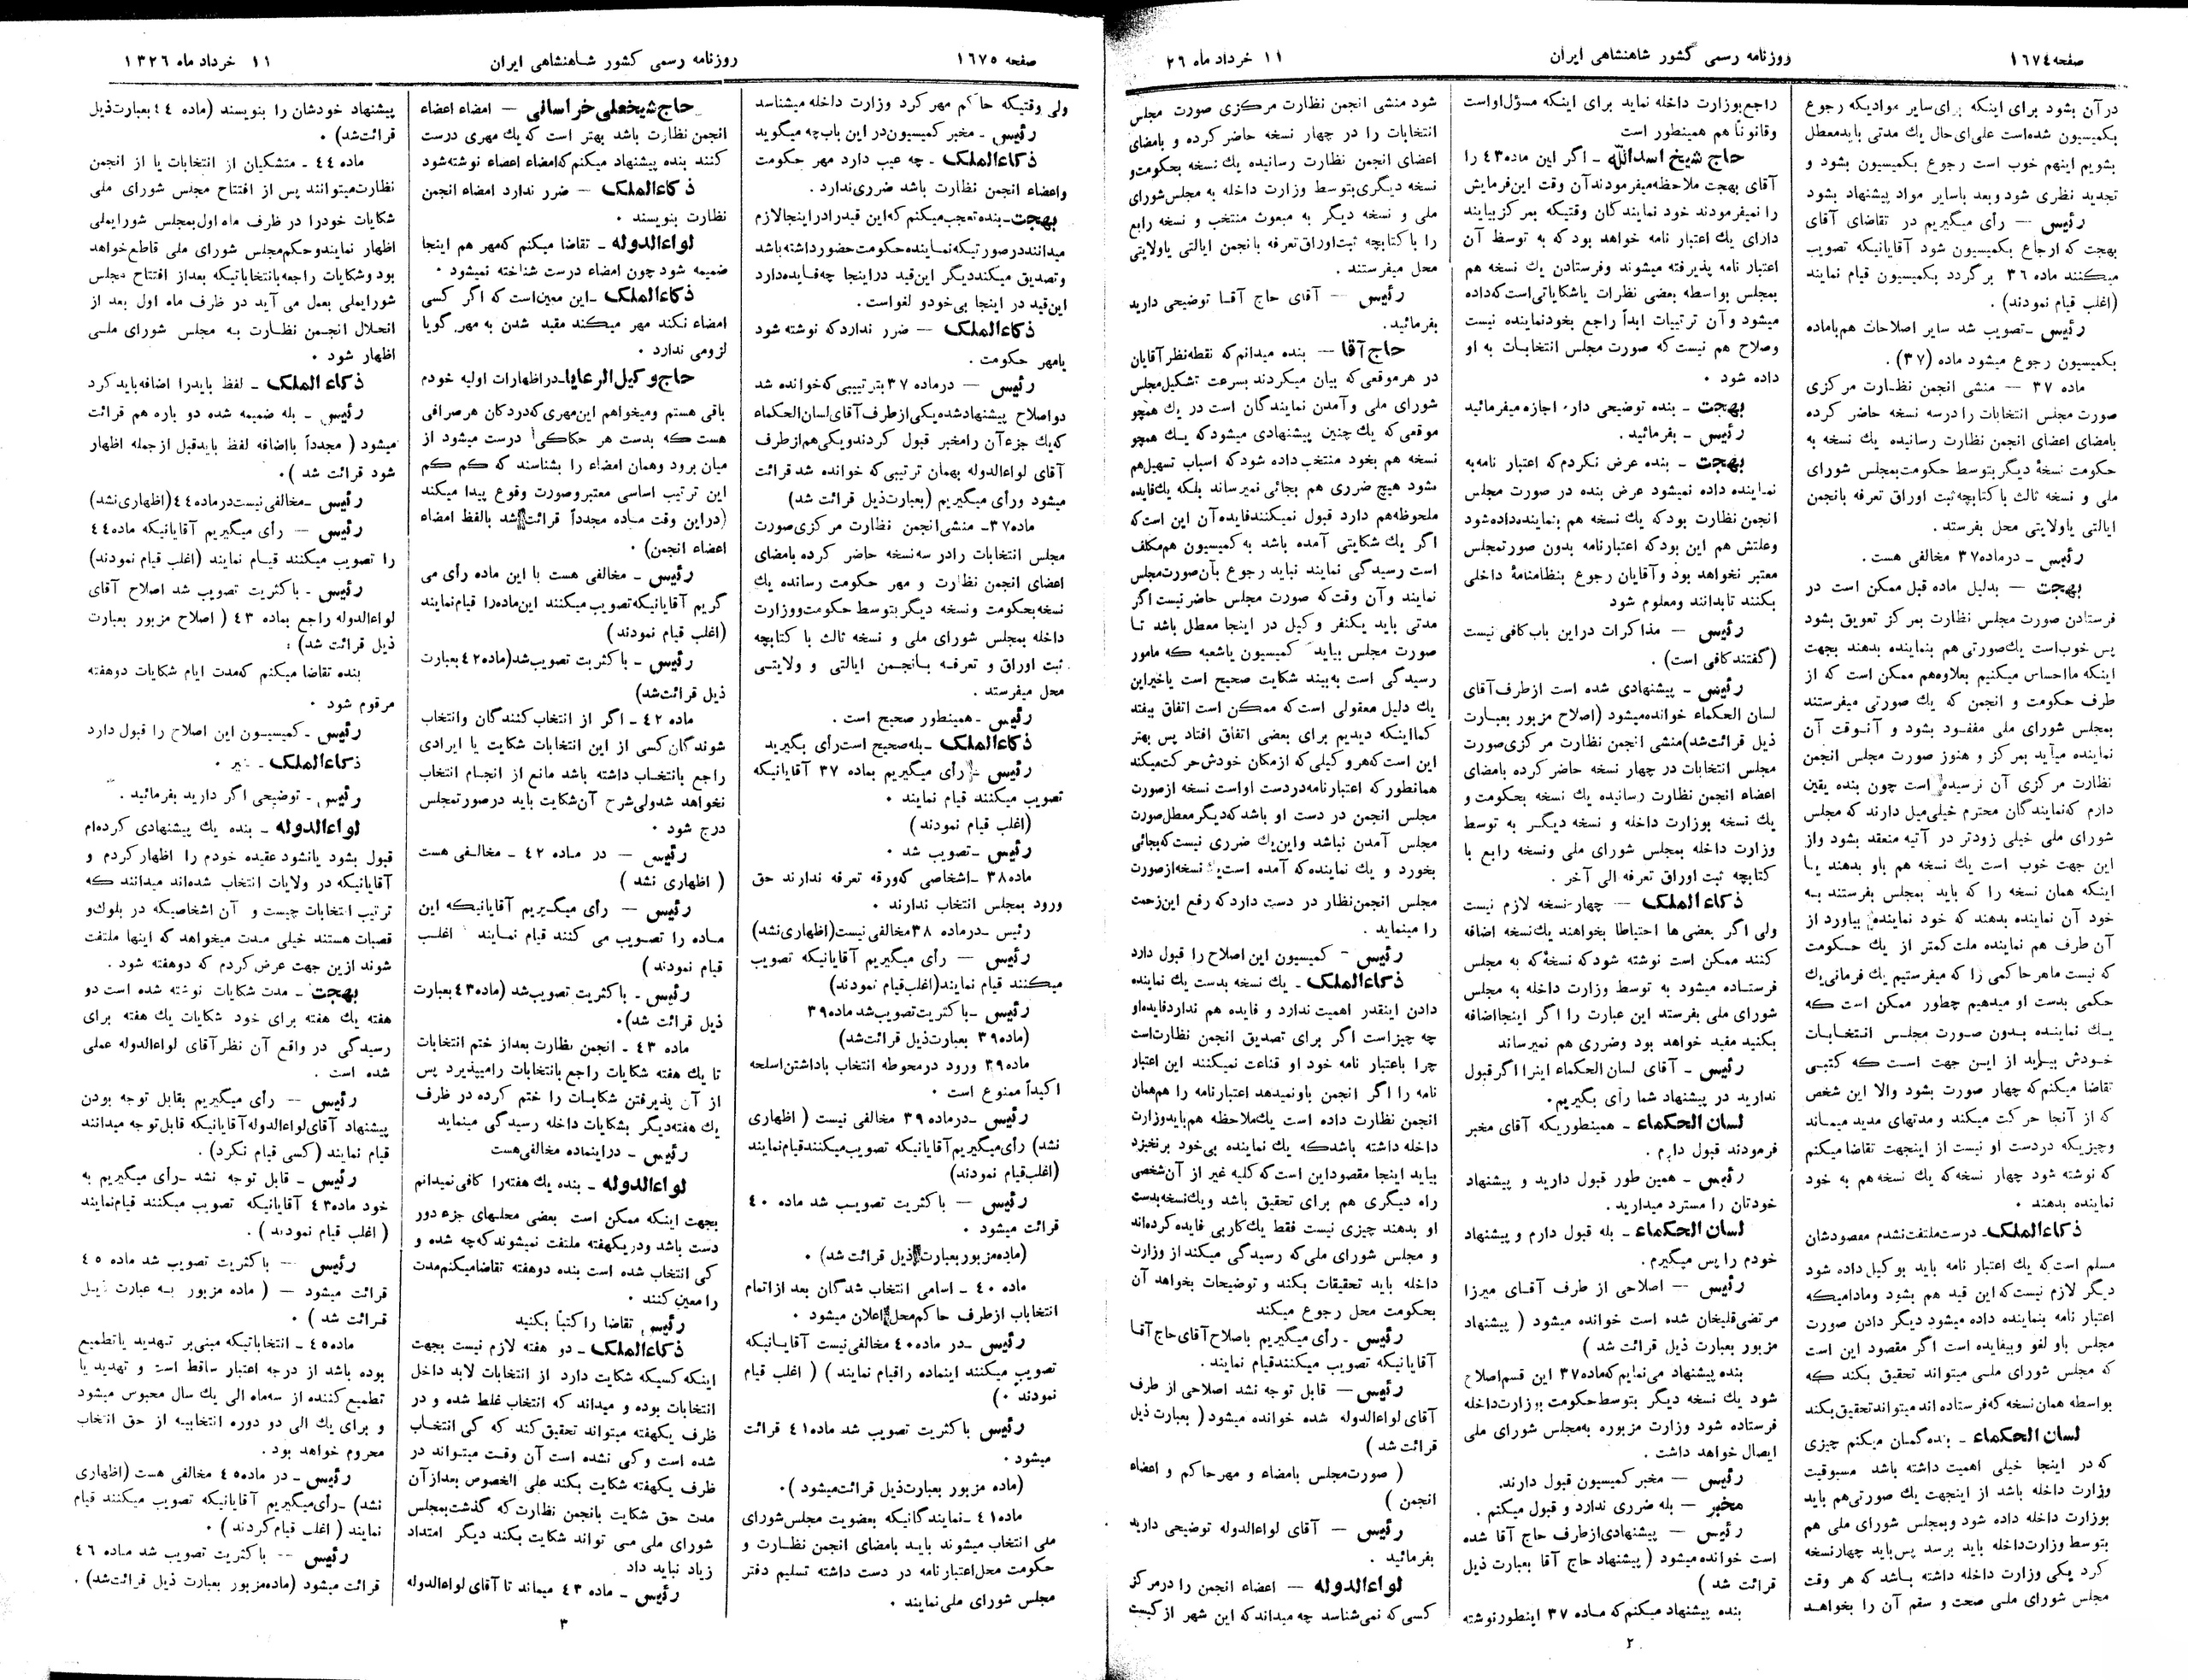 صفحه ۱۶۷۴
روزنامه رسمی کشور شاهنشاهی ایران
۱۱ خرداد ماه ۲۶
در آن بشود برای اینکه برای سایر موادیکه رجوع
بکمیسیون شده‌است علی‌ای‌حال یك مدتی بایدمعطل
بشویم اینهم خوب است رجوع بکمیسیون بشود و
تجدید نظری شود وبعد باسایر مواد پیشنهاد بشود
رئیس — رأی میگیریم در تقاضای آقای
بهجت که ارجاع بکمیسیون شود آقایانیکه تصویب
میکنند ماده ۳۶ برگردد بکمیسیون قیام نمایند
(اغلب قیام نمودند).
رئیس ـ تصویب شد سایر اصلاحات هم باماده
بکمیسیون رجوع میشود ماده (۳۷).
ماده ۳۷ — منشی انجمن نظارت مرکزی
صورت مجلس انتخابات را درسه نسخه حاضر کرده
بامضای اعضای انجمن نظارت رسانیده یك نسخه به
حکومت نسخهٔ دیگر بتوسط حکومت بمجلس شورای
ملی و نسخه ثالث با کتابچه ثبت اوراق تعرفه بانجمن
ایالتی یاولایتی محل بفرستد .
رئیس ـ درماده ۳۷ مخالفی هست .
بهجت — بدلیل ماده قبل ممکن است در
فرستادن صورت مجلس نظارت بمرکز تعویق بشود
پس خوب‌است یك‌صورتی هم بنماینده بدهند بجهت
اینکه مااحساس میکنیم بعلاوه‌هم ممکن است که از
طرف حکومت و انجمن که یك صورتی میفرستند
بمجلس شورای ملی مفقود بشود و آنوقت آن
نماینده میآید بمرکز و هنوز صورت مجلس انجمن
نظارت مرکزی آن نرسیده است چون بنده یقین
دارم که‌نمایندگان محترم خیلی‌میل دارند که مجلس
شورای ملی خیلی زودتر در آتیه منعقد بشود واز
این جهت خوب است یك نسخه هم باو بدهند یا
اینکه همان نسخه را که باید بمجلس بفرستند به
خود آن نماینده بدهند که خود نماینده بیاورد از
آن طرف هم نماینده ملت کمتر از یك حکومت
که نیست ماهر حاکمی را که میفرستیم یك فرمانی‌یك
حکمی بدست او میدهیم چطور ممکن است که
یك نماینده بدون صورت مجلس انتخابات
خودش بیاید از این جهت است که کتبی
تقاضا میکنم که چهار صورت بشود والا این شخص
که از آنجا حرکت میکند و مدتهای مدید میماند
وچیزیکه دردست او نیست از اینجهت تقاضا میکنم
که نوشته شود چهار نسخه که یك نسخه هم به خود
نماینده بدهند .
ذکاءالملک ـ درست ملتفت نشدم مقصودشان
مسلم است که یك اعتبار نامه باید بوکیل داده شود
دیگر لازم نیست که این قید هم بشود ومادامیکه
اعتبار نامه بنماینده داده میشود دیگر دادن صورت
مجلس باو لغو وبیفایده است اگر مقصود این است
که مجلس شورای ملی میتواند تحقیق بکند که
بواسطه همان نسخه که فرستاده اند میتواند تحقیق بکند
لسان الحکماء ـ بنده گمان میکنم چیزی
که در اینجا خیلی اهمیت داشته باشد مسبوقیت
وزارت داخله باشد از اینجهت یك صورتی هم باید
بوزارت داخله داده شود وبمجلس شورای ملی هم
بتوسط وزارت‌داخله باید برسد پس‌باید چهارنسخه
کرد یکی وزارت داخله داشته باشد که هر وقت
مجلس شورای ملی صحت و سقم آن را بخواهد
راجع بوزارت داخله نماید برای اینکه مسؤل اواست
وقانوناً هم همینطور است
حاج شیخ اسدالله ـ اگر این ماده ۴۳ را
آقای بهجت ملاحظه میفرمودند آن وقت این فرمایش
را نمیفرمودند خود نمایندگان وقتیکه بمرکز بیایند
دارای یك اعتبار نامه خواهد بود که به توسط آن
اعتبار نامه پذیرفته میشوند وفرستادن یك نسخه هم
بمجلس بواسطه بعضی نظرات یاشکایاتی است که‌داده
میشود و آن ترتیبات ابداً راجع بخودنماینده نیست
وصلاح هم نیست که صورت مجلس انتخابات به او
داده شود .
بهجت ـ بنده توضیحی دارم اجازه میفرمائید
رئیس ـ بفرمائید .
بهجت ـ بنده عرض نکردم که اعتبار نامه‌به
نماینده داده نمیشود عرض بنده در صورت مجلس
انجمن نظارت بود که یك نسخه هم بنماینده داده شود
وعلتش هم این بود که اعتبارنامه بدون صورتمجلس
معتبر نخواهد بود و آقایان رجوع بنظامنامهٔ داخلی
بکنند تابدانند ومعلوم شود
رئیس — مذاکرات دراین باب کافی نیست
(گفتند کافی است) .
رئیس ـ پیشنهادی شده است از طرف آقای
لسان الحکماء خوانده میشود (اصلاح مزبور بعبارت
ذیل قرائت‌شد) منشی انجمن نظارت مرکزی صورت
مجلس انتخابات در چهار نسخه حاضر کرده بامضای
اعضاء انجمن نظارت رسانیده یك نسخه بحکومت و
یك نسخه بوزارت داخله و نسخه دیگر به توسط
وزارت داخله بمجلس شورای ملی ونسخه رابع با
کتابچه ثبت اوراق تعرفه الی آخر .
ذکاءالملک — چهار نسخه لازم نیست
ولی اگر بعضی ها احتیاطا بخواهند یك نسخه اضافه
کنند ممکن است نوشته شود که نسخهٔ که به مجلس
فرستاده میشود به توسط وزارت داخله به مجلس
شورای ملی بفرستد این عبارت را اگر اینجااضافه
بکنید مفید خواهد بود وضرری هم نمیرساند
رئیس ـ آقای لسان الحکماء اینرا اگر قبول
ندارید در پیشنهاد شما رأی بگیریم.
لسان الحکماء ـ همینطوریکه آقای مخبر
فرمودند قبول دارم .
رئیس ـ همین طور قبول دارید و پیشنهاد
خودتان را مسترد میدارید .
لسان الحکماء ـ بله قبول دارم و پیشنهاد
خودم را پس میگیرم.
رئیس — اصلاحی از طرف آقای میرزا
مرتضی قلیخان شده است خوانده میشود ( پیشنهاد
مزبور بعبارت ذیل قرائت شد )
بنده پیشنهاد می‌نمایم که‌ماده ۳۷ این قسم اصلاح
شود یك نسخه دیگر بتوسط حکومت بوزارت داخله
فرستاده شود وزارت مزبوره به‌مجلس شورای ملی
ایصال خواهد داشت .
رئیس — مخبر کمیسیون قبول دارند.
مخبر — بله ضرری ندارد و قبول میکنم .
رئیس — پیشنهادی از طرف حاج آقا شده
است خوانده میشود ( پیشنهاد حاج آقا بعبارت ذیل
قرائت شد )
بنده پیشنهاد میکنم که ماده ۳۷ اینطورنوشته
شود منشی انجمن نظارت مرکزی صورت مجلس
انتخابات را در چهار نسخه حاضر کرده و بامضای
اعضای انجمن نظارت رسانیده یك نسخه بحکومت و
نسخه دیگری بتوسط وزارت داخله به مجلس شورای
ملی و نسخه دیگر به مبعوث منتخب و نسخه رابع
را با کتابچه ثبت اوراق تعرفه بانجمن ایالتی یاولایتی
محل میفرستند .
رئیس — آقای حاج آقا توضیحی دارید
بفرمائید.
حاج آقا — بنده میدانم که نقطه‌نظر آقایان
در هرموقعی که بیان میکردند بسرعت تشکیل مجلس
شورای ملی و آمدن نمایندگان است در یك همچو
موقعی که یك چنین پیشنهادی میشود که یك همچو
نسخه هم بخود منتخب داده شود که اسباب تسهیل هم
بشود هیچ ضرری هم بجائی نمیرساند بلکه یك فایده
ملحوظه‌هم دارد قبول نمیکنند فایده آن این است که
اگر یك شکایتی آمده باشد به کمیسیون هم مکلف
است رسیدگی نمایند نباید رجوع بآن صورت مجلس
نمایند و آن وقت که صورت مجلس حاضر نیست اگر
مدتی باید یکنفر وکیل در اینجا معطل باشد تا
صورت مجلس بیاید کمیسیون یاشعبه که مامور
رسیدگی است به‌بیند شکایت صحیح است یاخیر این
یك دلیل معقولی است که ممکن است اتفاق بیفتد
کمااینکه دیدیم برای بعضی اتفاق افتاد پس بهتر
این است که هر وکیلی که از مکان خودش حرکت میکند
همانطور که اعتبارنامه‌دردست اواست نسخه از صورت
مجلس انجمن در دست او باشد که دیگر معطل صورت
مجلس آمدن نباشد واین یك ضرری نیست که بجائی
بخورد و یك نماینده که آمده است یك نسخه از صورت
مجلس انجمن نظار در دست دارد که رفع این زحمت
را مینماید .
رئیس — کمیسیون این اصلاح را قبول دارد
ذکاءالملک ـ یك نسخه بدست یك نماینده
دادن اینقدر اهمیت ندارد و فایده هم ندارد فایده او
چه چیزاست اگر برای تصدیق انجمن نظارت است
چرا باعتبار نامه خود او قناعت نمیکنند این اعتبار
نامه را اگر انجمن باو نمیدهد اعتبارنامه را هم همان
انجمن نظارت داده است یك ملاحظه هم باید وزارت
داخله داشته باشد که یك نماینده بی خود برنخیزد
بیاید اینجا مقصود این است که کلیه غیر از آن شخصی
راه دیگری هم برای تحقیق باشد ویك نسخه بدست
او بدهند چیزی نیست فقط یك کار بی فایده کرده‌اند
و مجلس شورای ملی که رسیدگی میکند از وزارت
داخله باید تحقیقات بکند و توضیحات بخواهد آن
بحکومت محل رجوع میکند
رئیس ـ رأی میگیریم باصلاح آقای حاج آقا
آقایانیکه تصویب میکنند قیام نمایند .
رئیس — قابل توجه نشد اصلاحی از طرف
آقای لواءالدوله شده خوانده میشود ( بعبارت ذیل
قرائت شد )
( صورت مجلس بامضاء و مهر حاکم و اعضاء
انجمن )
رئیس — آقای لواءالدوله توضیحی دارید
بفرمائید .
لواءالدوله — اعضاء انجمن را درمرکز
کسی که نمی‌شناسد چه میداند که این شهر از کیست
۲
صفحه ۱۶۷۵
روزنامه رسمی کشور شاهنشاهی ایران
۱۱ خرداد ماه ۱۳۲۶
ولی وقتیکه حاکم مهر کرد وزارت داخله میشناسد
رئیس ـ مخبر کمیسیون در این باب چه میگوید
ذکاءالملک ـ چه عیب دارد مهر حکومت
واعضاء انجمن نظارت باشد ضرری ندارد .
بهجت ـ بنده تعجب میکنم که این قیدرا در اینجا لازم
میدانند در صورتیکه نماینده حکومت حضور داشته باشد
و تصدیق میکند دیگر این‌قید دراینجا چه‌فایده‌دارد
این قید در اینجا بی‌خود و لغو است.
ذکاءالملک — ضرر ندارد که نوشته شود
یامهر حکومت .
رئیس — درماده ۳۷ بترتیبی که خوانده شد
دو اصلاح پیشنهاد شده یکی از طرف آقای لسان الحکماء
که یك جزء آن را مخبر قبول کردند ویکی هم از طرف
آقای لواءالدوله بهمان ترتیبی که خوانده شد قرائت
میشود و رأی میگیریم (بعبارت ذیل قرائت شد)
ماده ۳۷ـ منشی انجمن نظارت مرکزی صورت
مجلس انتخابات را در سه نسخه حاضر کرده بامضای
اعضای انجمن نظارت و مهر حکومت رسانده یك
نسخه بحکومت ونسخه دیگر بتوسط حکومت و وزارت
داخله بمجلس شورای ملی و نسخه ثالث با کتابچه
ثبت اوراق و تعرفه بانجمن ایالتی و ولایتی
محل میفرستد .
رئیس ـ همینطور صحیح است .
ذکاءالملک ـ بله صحیح است رأی بگیرید
رئیس ـ رأی میگیریم بماده ۳۷ آقایانیکه
تصویب میکنند قیام نمایند .
(اغلب قیام نمودند)
رئیس ـ تصویب شد .
ماده ۳۸ ـ اشخاصی که ورقه تعرفه ندارند حق
ورود بمجلس انتخاب ندارند .
رئیس ـ درماده ۳۸ مخالفی نیست (اظهاری نشد)
رئیس — رأی میگیریم آقایانیکه تصویب
میکنند قیام نمایند (اغلب قیام نمودند)
رئیس ـ باکثریت تصویب شد ماده ۳۹
(ماده ۳۹ بعبارت ذیل قرائت شد)
ماده ۳۹ ورود در محوطه انتخاب باداشتن اسلحه
اکیداً ممنوع است .
رئیس ـ درماده ۳۹ مخالفی نیست ( اظهاری
نشد) رأی میگیریم آقایانیکه تصویب میکنند قیام نمایند
(اغلب قیام نمودند)
رئیس — باکثریت تصویب شد ماده ۴۰
قرائت میشود .
(ماده مزبور بعبارت ذیل قرائت شد) .
ماده ۴۰ ـ اسامی انتخاب شدگان بعد از اتمام
انتخاباب از طرف حاکم محل اعلان میشود .
رئیس ـ در ماده ۴۰ مخالفی نیست آقایانیکه
تصویب میکنند اینماده را قیام نمایند ) ( اغلب قیام
نمودند .)
رئیس باکثریت تصویب شد ماده ۴۱ قرائت
میشود .
(ماده مزبور بعبارت ذیل قرائت میشود ).
ماده ۴۱ ـ نمایندگانیکه بعضویت مجلس شورای
ملی انتخاب میشوند باید بامضای انجمن نظارت و
حکومت محل اعتبارنامه در دست داشته تسلیم دفتر
مجلس شورای ملی نمایند .
حاج شیخعلی خراسانی — امضاء اعضاء
انجمن نظارت باشد بهتر است که یك مهری درست
کنند بنده پیشنهاد میکنم که امضاء اعضاء نوشته شود
ذکاءالملک — ضرر ندارد امضاء انجمن
نظارت بنویسند .
لواءالدوله ـ تقاضا میکنم که مهر هم اینجا
ضمیمه شود چون امضاء درست شناخته نمیشود .
ذکاءالملک ـ این معین است که اگر کسی
امضاء نکند مهر میکند مقید شدن به مهر گویا
لزومی ندارد .
حاج وکیل الرعایا ـ در اظهارات اولیه خودم
باقی هستم ومیخواهم این مهری که در دکان هر صرافی
هست که بدست هر حکاکی درست میشود از
میان برود وهمان امضاء را بشناسند که کم کم
این ترتیب اساسی معتبر وصورت وقوع پیدا میکند
(دراین وقت ماده مجدداً قرائت شد بالفظ امضاء
اعضاء انجمن) .
رئیس ـ مخالفی هست با این ماده رأی می
گریم آقایانیکه تصویب میکنند این ماده را قیام نمایند
(اغلب قیام نمودند)
رئیس ـ باکثریت تصویب شد (ماده ۴۲ بعبارت
ذیل قرائت شد)
ماده ۴۲ ـ اگر از انتخاب کنندگان وانتخاب
شوندگان کسی از این انتخابات شکایت یا ایرادی
راجع بانتخاب داشته باشد مانع از انجام انتخاب
نخواهد شد ولی شرح آن شکایت باید در صورتمجلس
درج شود .
رئیس — در ماده ۴۲ ـ مخالفی هست
( اظهاری نشد )
رئیس — رأی میگیریم آقایانیکه این
ماده را تصویب می کنند قیام نمایند اغلب
قیام نمودند )
رئیس ـ باکثریت تصویب شد (ماده ۴۳ بعبارت
ذیل قرائت شد).
ماده ۴۳ ـ انجمن نظارت بعد از ختم انتخابات
تا یك هفته شکایات راجع بانتخابات رامیپذیرد پس
از آن پذیرفتن شکایات را ختم کرده در ظرف
یك هفته دیگر بشکایات داخله رسیدگی مینماید
رئیس ـ دراینماده مخالفی هست
لواءالدوله ـ بنده یك هفته را کافی نمیدانم
بجهت اینکه ممکن است بعضی محلهای جزء دور
دست باشد ودر یکهفته ملتفت نمیشوند که چه شده و
کی انتخاب شده است بنده دوهفته تقاضا میکنم مدت
را معین کنند .
رئیس تقاضا را کتباً بکنید
ذکاءالملک ـ دو هفته لازم نیست بجهت
اینکه کسیکه شکایت دارد از انتخابات لابد داخل
انتخابات بوده و میداند که انتخاب غلط شده و در
ظرف یکهفته میتواند تحقیق کند که کی انتخاب
شده است و کی نشده است آن وقت میتواند در
ظرف یکهفته شکایت بکند علی الخصوص بعد از آن
مدت حق شکایت بانجمن نظارت که گذشت بمجلس
شورای ملی می تواند شکایت بکند دیگر امتداد
زیاد نباید داد
رئیس ـ ماده ۴۳ میماند تا آقای لواءالدوله
پیشنهاد خودشان را بنویسند (ماده ۴۴ بعبارت ذیل
قرائت شد) .
ماده ۴۴ ـ متشکیان از انتخابات یا از انجمن
نظارت میتوانند پس از افتتاح مجلس شورای ملی
شکایات خودرا در ظرف ماه اول بمجلس شورایملی
اظهار نمایند وحکم مجلس شورای ملی قاطع خواهد
بود وشکایات راجعه بانتخاباتیکه بعد از افتتاح مجلس
شورایملی بعمل می آید در ظرف ماه اول بعد از
انحلال انجمن نظارت به مجلس شورای ملی
اظهار شود .
ذکاءالملک ـ لفظ باید را اضافه باید کرد
رئیس ـ بله ضمیمه شده دو باره هم قرائت
میشود ( مجدداً بااضافه لفظ باید قبل از جمله اظهار
شود قرائت شد ).
رئیس ـ مخالفی نیست درماده ۴۴ (اظهاری نشد)
رئیس — رأی میگیریم آقایانیکه ماده ۴۴
را تصویب میکنند قیام نمایند (اغلب قیام نمودند)
رئیس ـ باکثریت تصویب شد اصلاح آقای
لواءالدوله راجع بماده ۴۳ ( اصلاح مزبور بعبارت
ذیل قرائت شد) :
بنده تقاضا میکنم که مدت ایام شکایات دوهفته
مرقوم شود .
رئیس ـ کمیسیون این اصلاح را قبول دارد
ذکاءالملک ـ خیر .
رئیس ـ توضیحی اگر دارید بفرمائید .
لواءالدوله ـ بنده یك پیشنهادی کرده‌ام
قبول بشود یانشود عقیده خودم را اظهار کردم و
آقایانیکه در ولایات انتخاب شده‌اند میدانند که
ترتیب انتخابات چیست و آن اشخاصیکه در بلوك و
قصبات هستند خیلی مدت میخواهد که اینها ملتفت
شوند ازین جهت عرض کردم که دوهفته شود .
بهجت ـ مدت شکایات نوشته شده است دو
هفته یك هفته برای خود شکایات یك هفته برای
رسیدگی در واقع آن نظر آقای لواءالدوله عملی
شده است .
رئیس — رأی میگیریم بقابل توجه بودن
پیشنهاد آقای لواءالدوله آقایانیکه قابل توجه میدانند
قیام نمایند (کسی قیام نکرد) .
رئیس ـ قابل توجه نشد ـ رأی میگیریم به
خود ماده ۴۳ آقایانیکه تصویب میکنند قیام نمایند
( اغلب قیام نمودند ) .
رئیس — باکثریت تصویب شد ماده ۴۵
قرائت میشود — ( ماده مزبور به عبارت ذیل
قرائت شد ) .
ماده ۴۵ ـ انتخاباتیکه مبنی بر تهدید یا تطمیع
بوده باشد از درجه اعتبار ساقط است و تهدید یا
تطمیع کننده از سه‌ماه الی یك سال محبوس میشود
و برای یك الی دو دوره انتخابیه از حق انتخاب
محروم خواهد بود .
رئیس ـ در ماده ۴۵ مخالفی هست (اظهاری
نشد) ـ رأی میگیریم آقایانیکه تصویب میکنند قیام
نمایند ( اغلب قیام کردند ) .
رئیس — باکثریت تصویب شد ماده ۴۶
قرائت میشود (ماده مزبور بعبارت ذیل قرائت شد) .
۳